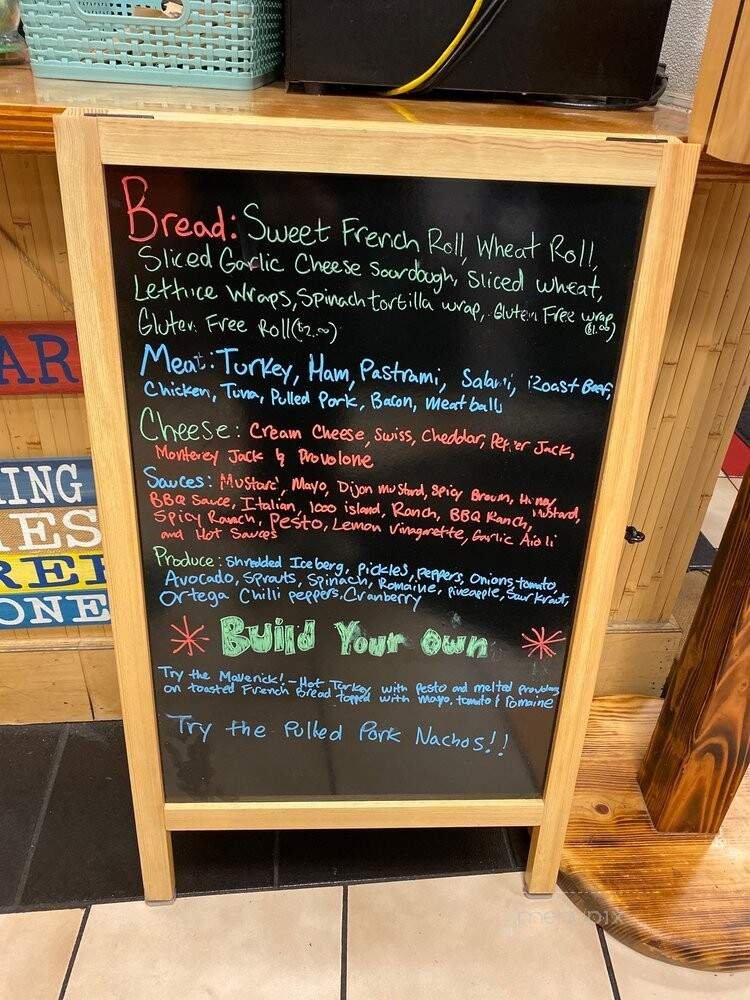 Bread: Sweet French Roll, Wheat Roll,
Sliced Garlic Cheese Sourdough, Sliced wheat,
Lettuce Wraps, Spinach tortilla wrap, Gluten Free wrap
($1.00)
Gluten Free Roll ($2.00)
Meat: Turkey, Ham, Pastrami, Salami, Roast Beef,
Chicken, Tuna, Pulled Pork, Bacon, Meatball
Cheese: Cream Cheese, Swiss, Cheddar, Pepper Jack,
Monterey Jack & Provolone
Sauces: Mustard, Mayo, Dijon mustard, Spicy Brown, Honey Mustard,
BBQ Sauce, Italian, 1000 island, Ranch, BBQ Ranch,
Spicy Ranch, Pesto, Lemon Vinagarette, Garlic Aioli
and Hot Sauces
Produce: Shredded Iceberg, Pickles, Peppers, Onions, tomato,
Avocado, Sprouts, Spinach, Romaine, pineapple, Sour Kraut,
Ortega Chilli peppers, Cranberry
Build Your Own
Try the Maverick! - Hot Turkey with Pesto and melted provolone
on toasted French Bread topped with Mayo, tomato & Romaine
Try the Pulled Pork Nachos!!
AR
ING
ES
REE
ONE